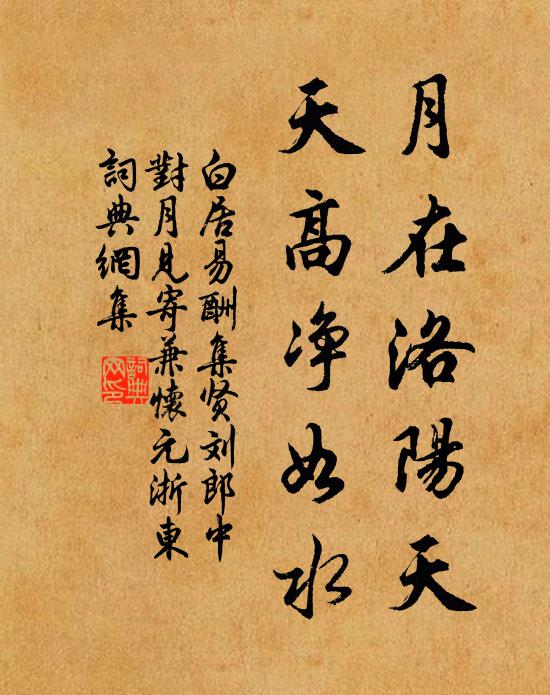 月在洛陽天
天高净如水
白居易酬集贤刘郎中
對月見寄兼懷元浙東
詞典網集
詞典网印